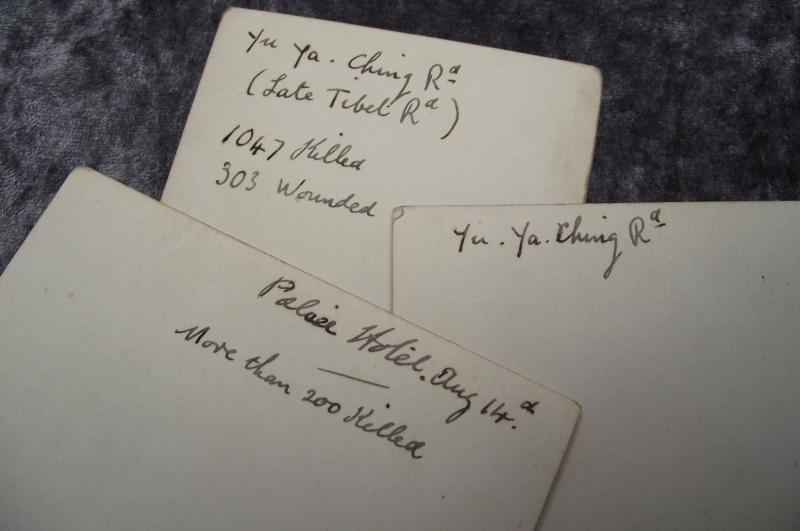 Yu Ya. Ching Rd
(Late Tibet Rd)
1047 Killed
303 Wounded
Yu. Ya. Ching Rd
Palace Hotel. Aug 14.d
More than 200 Killed